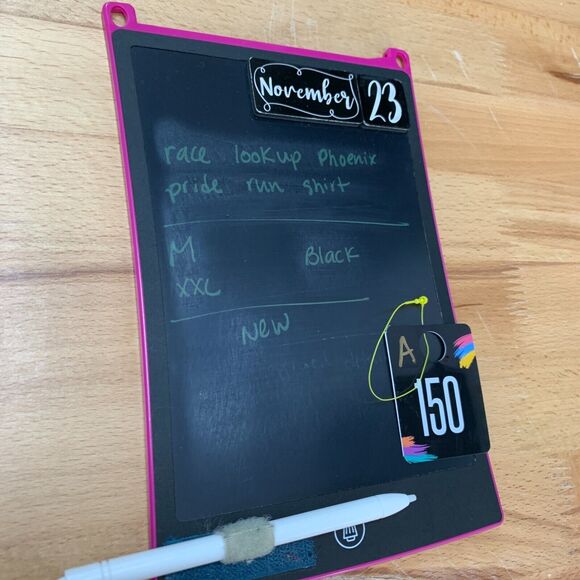 November 23
race lookup Phoenix
pride run shirt
M Black
XXL
New
A
150